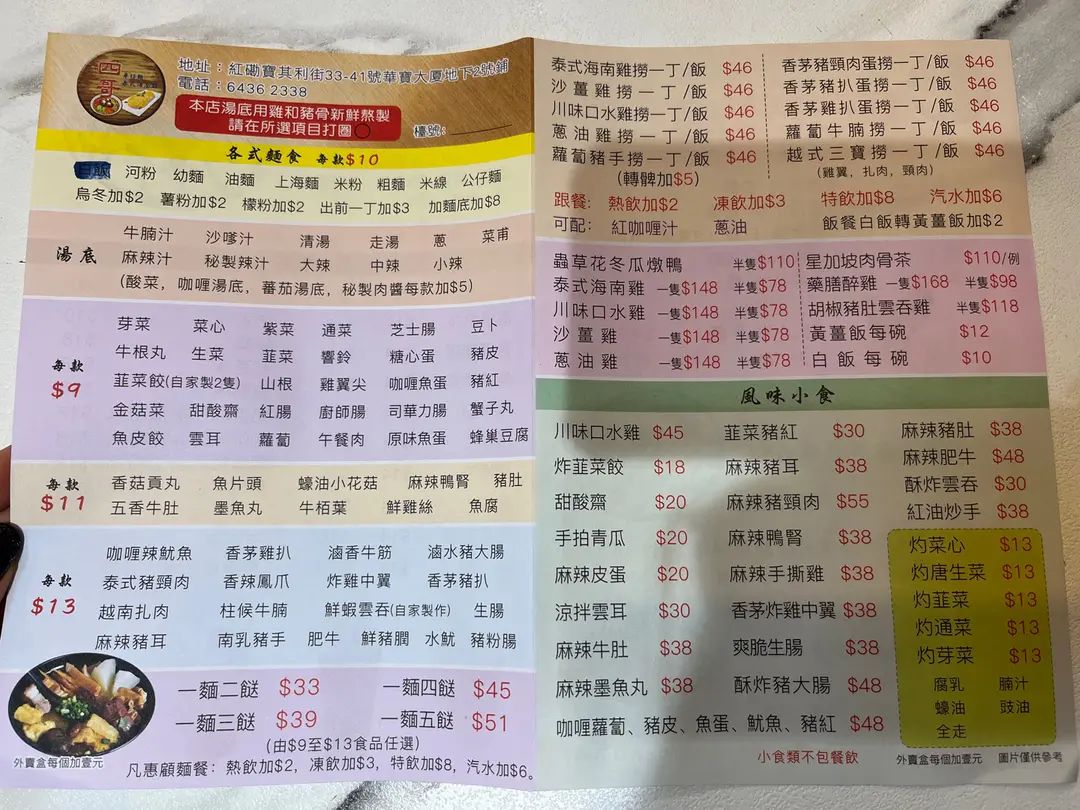 四哥
地址：紅磡寶其利街33-41號華寶大厦地下2號鋪
電話：6436 2338
本店湯底用雞和豬骨新鮮熬製
請在所選項目打圈○
檯號：
各式麵食 每款$10
白飯 河粉 幼麵 油麵 上海麵 米粉 粗麵 米線 公仔麵
烏冬加$2 薯粉加$2 檬粉加$2 出前一丁加$3 加麵底加$8
湯底
牛腩汁 沙嗲汁 清湯 走湯 蔥 菜甫
麻辣汁 秘製辣汁 大辣 中辣 小辣
(酸菜，咖喱湯底，蕃茄湯底，秘製肉醬每款加$5)
每款
$9
芽菜 菜心 紫菜 通菜 芝士腸 豆卜
牛根丸 生菜 韮菜 響鈴 糖心蛋 豬皮
韮菜餃(自家製2隻) 山根 雞翼尖 咖喱魚蛋 豬紅
金菇菜 甜酸齋 紅腸 廚師腸 司華力腸 蟹子丸
魚皮餃 雲耳 蘿蔔 午餐肉 原味魚蛋 蜂巢豆腐
每款
$11
香菇貢丸 魚片頭 蠔油小花菇 麻辣鴨腎 豬肚
五香牛肚 墨魚丸 牛栢葉 鮮雞絲 魚腐
每款
$13
咖喱辣魷魚 香茅雞扒 滷香牛筋 滷水豬大腸
泰式豬頸肉 香辣鳳爪 炸雞中翼 香茅豬扒
越南扎肉 柱候牛腩 鮮蝦雲吞(自家製作) 生腸
麻辣豬耳 南乳豬手 肥牛 鮮豬膶 水魷 豬粉腸
一麵二餸 $33 一麵四餸 $45
一麵三餸 $39 一麵五餸 $51
(由$9至$13食品任選)
外賣盒每個加壹元
凡惠顧麵餐：熱飲加$2，凍飲加$3，特飲加$8，汽水加$6。
泰式海南雞撈一丁/飯 $46 香茅豬頸肉蛋撈一丁/飯 $46
沙薑雞撈一丁/飯 $46 香茅豬扒蛋撈一丁/飯 $46
川味口水雞撈一丁/飯 $46 香茅雞扒蛋撈一丁/飯 $46
蔥油雞撈一丁/飯 $46 蘿蔔牛腩撈一丁/飯 $46
蘿蔔豬手撈一丁/飯 $46 越式三寶撈一丁/飯 $46
(轉髀加$5) (雞翼，扎肉，頸肉)
跟餐：熱飲加$2 凍飲加$3 特飲加$8 汽水加$6
可配：紅咖喱汁 蔥油 飯餐白飯轉黃薑飯加$2
蟲草花冬瓜燉鴨 半隻$110 星加坡肉骨茶 $110/例
泰式海南雞 一隻$148 半隻$78 藥膳醉雞 一隻$168 半隻$98
川味口水雞 一隻$148 半隻$78 胡椒豬肚雲吞雞 半隻$118
沙薑雞 一隻$148 半隻$78 黃薑飯每碗 $12
蔥油雞 一隻$148 半隻$78 白飯每碗 $10
風味小食
川味口水雞 $45 韮菜豬紅 $30 麻辣豬肚 $38
炸韮菜餃 $18 麻辣豬耳 $38 麻辣肥牛 $48
甜酸齋 $20 麻辣豬頸肉 $55 酥炸雲吞 $30
手拍青瓜 $20 麻辣鴨腎 $38 紅油炒手 $38
麻辣皮蛋 $20 麻辣手撕雞 $38
涼拌雲耳 $30 香茅炸雞中翼 $38
麻辣牛肚 $38 爽脆生腸 $38
麻辣墨魚丸 $38 酥炸豬大腸 $48
咖喱蘿蔔、豬皮、魚蛋、魷魚、豬紅 $48
灼菜心 $13
灼唐生菜 $13
灼韮菜 $13
灼通菜 $13
灼芽菜 $13
腐乳 腩汁
蠔油 豉油
全走
小食類不包餐飲 外賣盒每個加壹元 圖片僅供參考